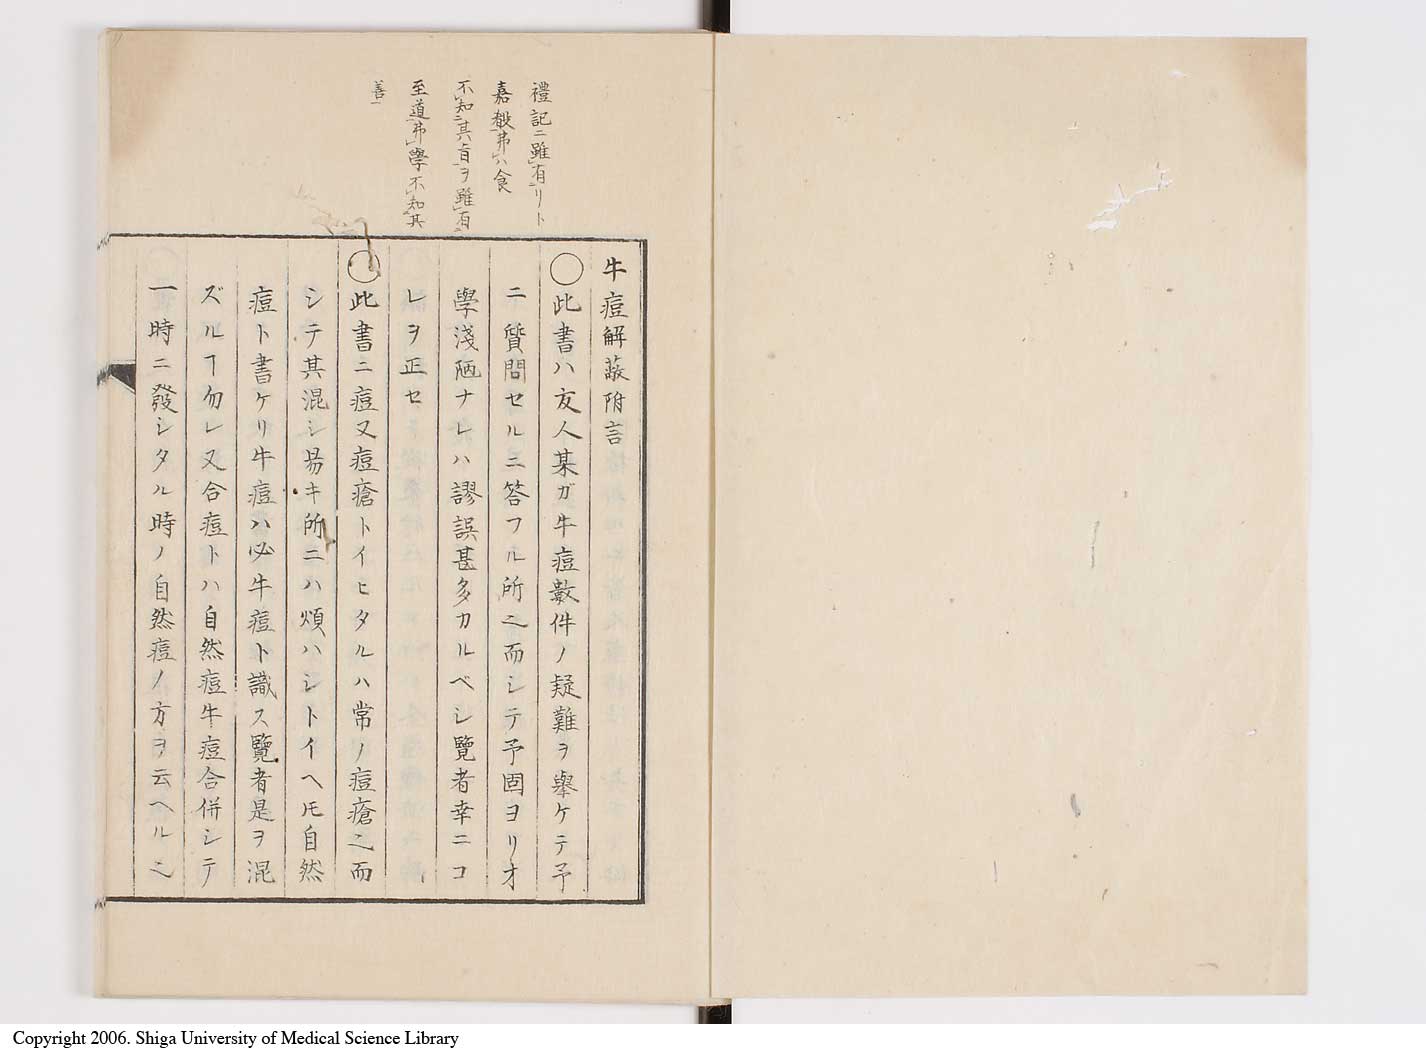 禮記ニ雖有リト
嘉殽弗ハ食
不知其旨ヲ雖有
至道弗學不知其
善
牛痘解蔽附言
○此書ハ友人某ガ牛痘數件ノ疑難ヲ擧ケテ予
ニ質問セル三答フル所之而シテ予固ヨリ才
學淺陋ナレハ謬誤甚多カルベシ覽者幸ニコ
レヲ正セ
○此書ニ痘又痘瘡トイヒタルハ常ノ痘瘡之而
シテ其混シ易キ所ニハ煩ハシトイヘ𪜈自然
痘ト書ケリ牛痘ハ必牛痘ト識ス覽者是ヲ混
ズルヿ勿レ又合痘トハ自然痘牛痘合併シテ
一時ニ發シタル時ノ自然痘ノ方ヲ云ヘル之
Copyright 2006. Shiga University of Medical Science Library